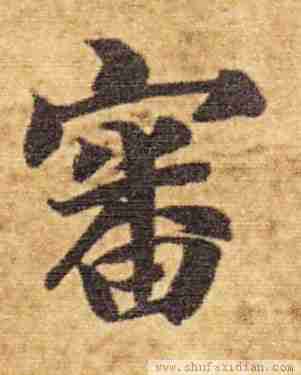 審
www.shufaxidian.com